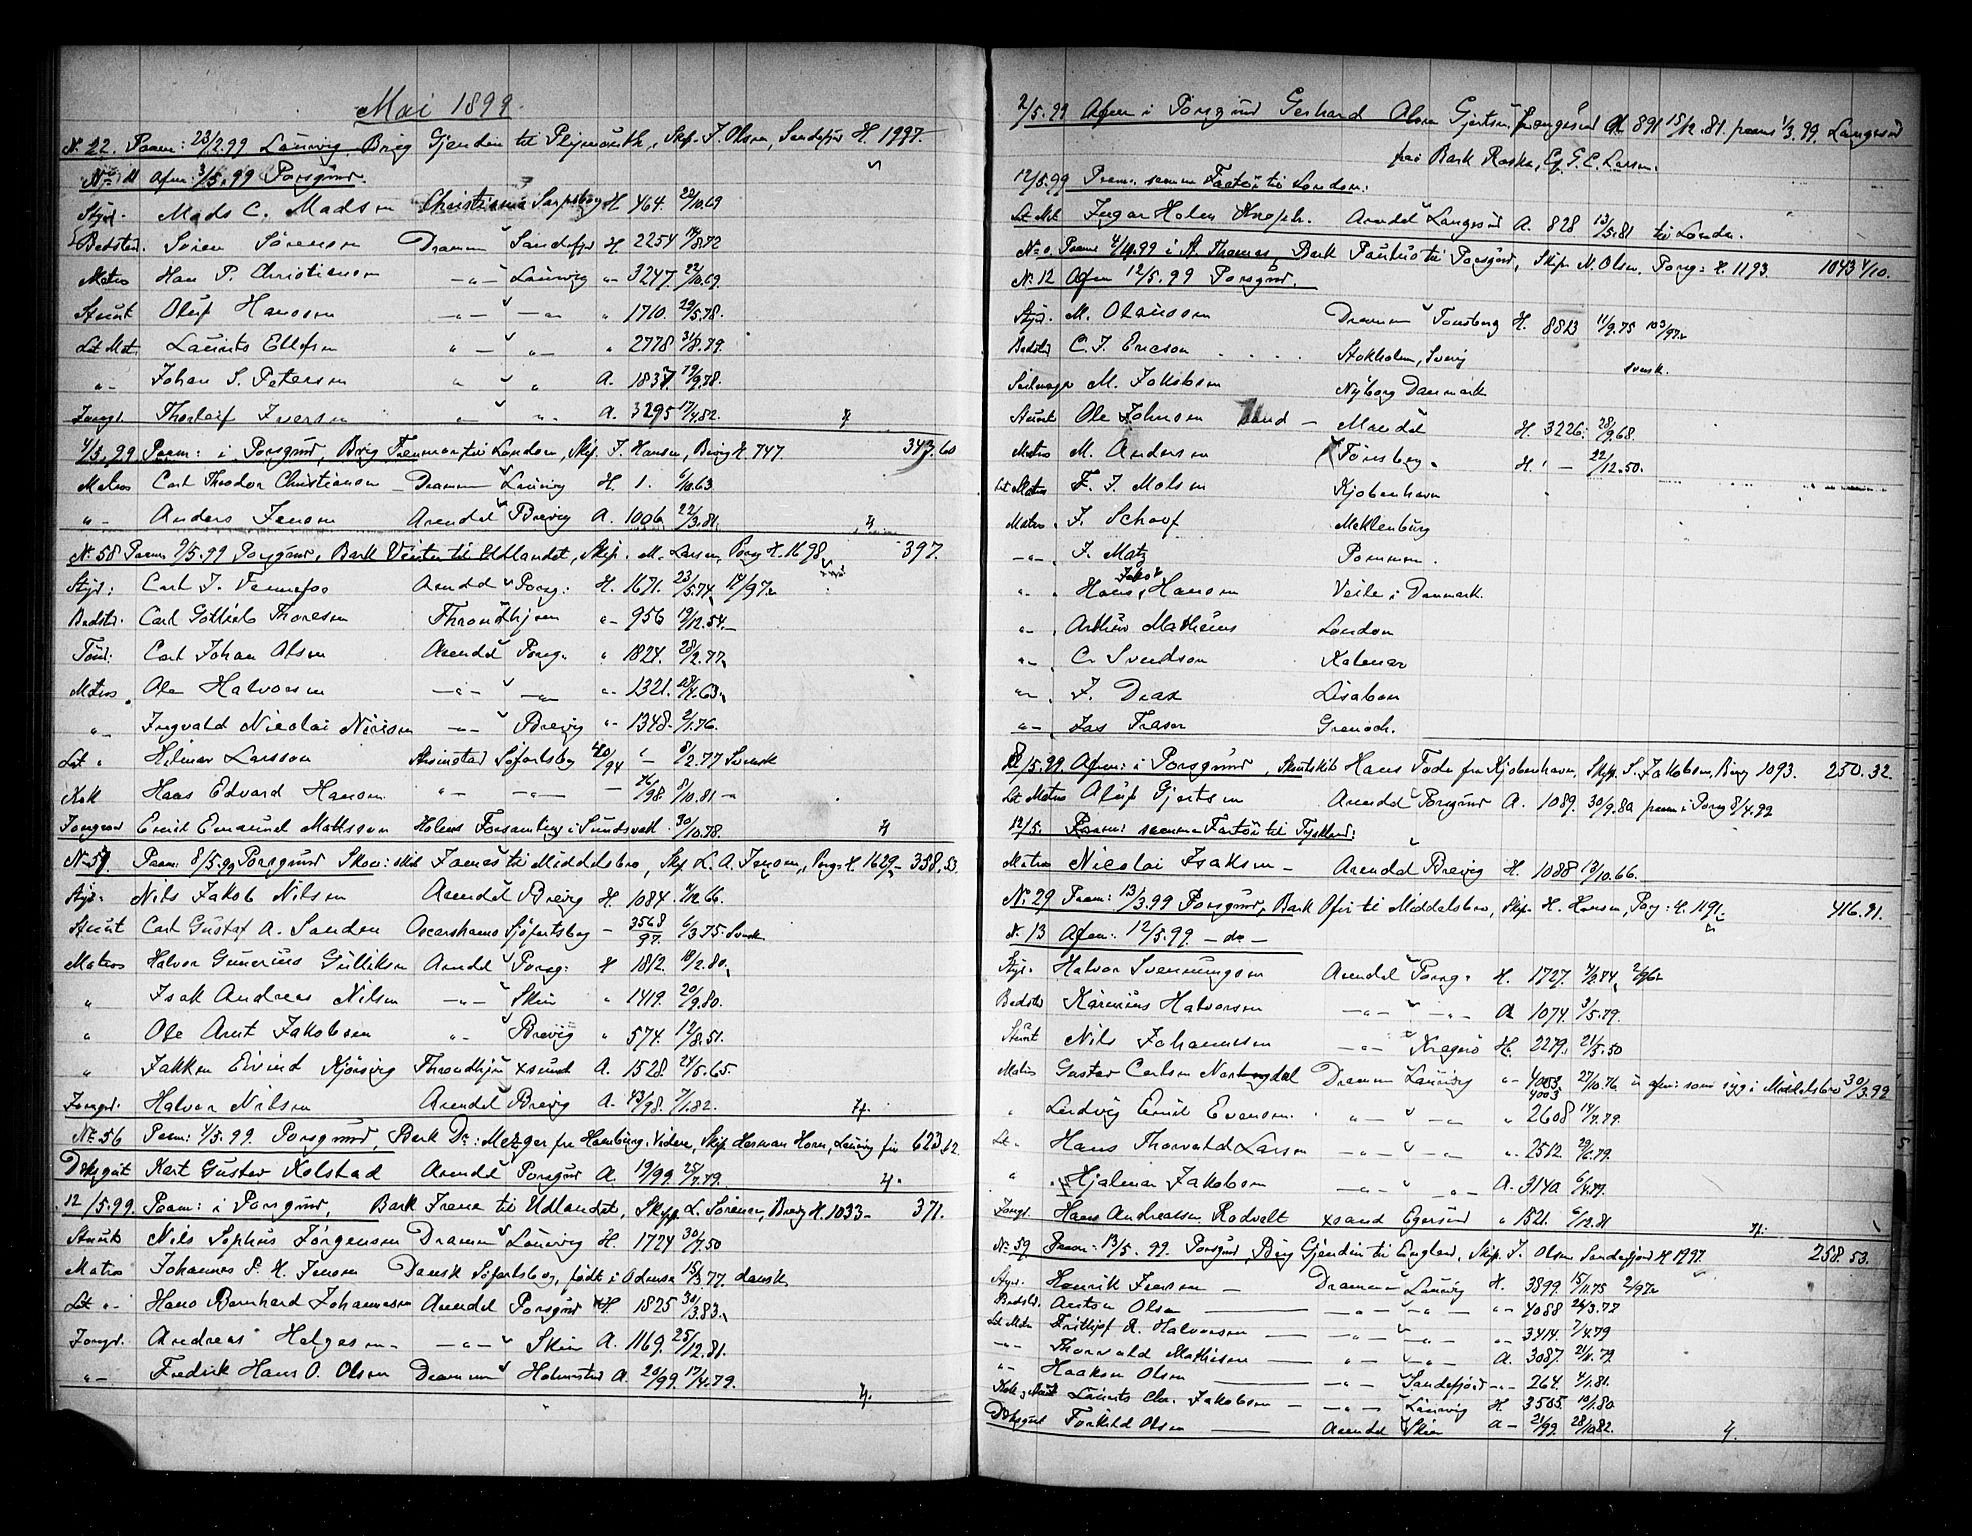 Mai 1899.
No 22. Paam: 23/2.99 Laurvig. Brig Gjendin til Plymouth, Skp. J. Olsen, Sandefjord H. 1997.
No 11 Afm: 3/5.99 Porsgrund.
Styd. Mads C. Madsen Christiania Sarpsborg H. 464. 22/10.69
Bedstm. Sören Sörensen Drammen Sandefjd H. 2254 14/8.72
Matros Han P. Christiansen -"- Laurvig " 3247. 22/10.69.
Stuert Oluf Hansen -"- -"- " 1710. 29/5.78.
Let Mat. Laurits Ellefsen " - " - " 2778 31/8.79.
" - Johan S. Petersen " " A. 1837. 19/9.78.
Jungd. Thorleif Iversen " " A. 3295 17/4.82.
4/5.99. Paam: i Porsgrund, Brig Fremmar til London, Skp. J. Hansen, Brevig H. 747. 347.60
Matros Carl Theodor Christiansen Drammen Laurvig H. 1. 6/10.63.
" - Anders Jensen Arendal Brevig A. 1006 22/3.81.
No 58 Paam 9/5.99 Porsgrund, Bark Venten til Udlandet, Skp. M. Larsen, Porsg H. 1698 397.
Styd: Carl J. Tennefos Arendal Porsg: H. 1671. 23/5.74.
Bedstd. Carl Gottlieb Thoresen Throndhjem " - 956 19/12.54.
Tömd: Carl Johan Olsen Arendal Porsg. " 1824. 28/2.77.
Matros Ole Halvorsen -"- -"- " 1321.
" - Ingvald Nicolai Nilsen -"- Brevig " 1348. 2/1.76.
Let " Hilmar Larsson Söfartsbog - 8/2.77 Svensk
Kok Hans Edvard Hansen " - -"- 8/10.81 -
Jungmd Ernst Emanuel Mattsson Holms Forsamling i Sundsvall. 30/10.78.
No 57. Paam: 8/5.99 Porsgrund Skon: skib James til Middelsbro, Skp. L. A. Jensen, Porsg. H. 1629. 358.53.
Styr: Nils Jakob Nilsen Arendal Brevig H. 1084.
Stuert Carl Gustaf A. Sanden Oscarshamns Söfartsbog - 3568/97. 6/3.75. Svensk
Matros Halvor Gunerius Gulliksen Arendal Porsg: H 1812. 10/2.80.
" Isak Andreas Nilsen -"- Skien " 1419. 20/9.80.
" Ole Arnt Jakobsen " - Brevig " 574. 12/8.51.
" Jakken Eivind Kjörsvig Throndhjem Xsund A. 1528. 24/5.65.
Jungd. Halvor Nilsen Arendal Brevig A. 43/98. 7/1.82.
No 56 Paam: 4/5.99. Porsgrund, Bark Dr: Metzger fra Hamburg Videre, Skp Herman Horn, 623.62.
Dksgut Kort Gustav Kolstad Arendal Porsgrund A. 19/99. 25/7.79.
12/5.99. Paam: i Porsgrund, Bark Irene til Udlandet, Skpp. L. Sörensen, Brevig H. 1033- 371.
Stuert Nils Sophus Jörgensen Drammen Laurvig H. 1724 30/7.50
Matros Johannes P. H. Jensen Dansk Söfartsbog, född i Odense 15/3.77. dansk
Let " - Hans Bernhard Johannesen Arendal Porsgrund H 1825 30/3.83.
Jungd. Andreas Helgesen -"- Skien A. 1169. 25/12.81.
" - Fredrik Hans O. Olsen Drammen Holmestrd A. 20/99. 17/4.79.
2/5.99 Afm i Porsgrund Gerhard Olsen Gjertsen, Langesund A 891 15/12.81. paam 1/3.99. Langesd
fra Bark Raska, Cp. G. E. Larsen.
12/5.99 Paam: samme Factor til London:
Let Mt Ingar Holm Knoph. Arendal Langesund A. 828 13/5.81 til London.
No 0. Paam: i St. Thomas, Bark Pauline til Porsgrund, Skpr. N. Olsen, Porsg: H. 1193. 1043 4/10.
No 12 Afm 12/5.99 Porsgrund.
Styd. M. Olaussen Drammen Tønsberg H. 8813 11/9.75
Bedstd C. J. Ericson Stokholm, Sverig svensk.
Seilmager M. Jakobsen Nyborg Danmark
Stuert Ole Johnsen Lund - Mandal H. 3226. 28/9.68.
Matros M. Andersen Tönsberg. H. - 22/12.50.
Let Matros F. J. Molsen Kjobenhavn
Matros. J. Schoof Meklenburg
-"- J. Matz Pommern.
" Hans Jakob Hansen Veile i Danmark.
" - Arthur Mathews London
" - C. Svendson Kalmar
" - J. Diax Lisabon
" - Jas Fraser Grenoch.
12/5.99. Afm: i Porsgrund, Skonskib Hans Tode fra Kjobenhavn, Skp. S. Jakobsen, Brevig 1093. 250.32.
Let Matros Oluf Gjertsen Arendal Porsgrund A. 1089. 30/9.80 paam i Porsg 8/4.92
12/5. Paam: samme Factor til Tyskland:
Matros Nicolai Isaksen - Arendal Brevig H. 1088 13/10.66.
No 29 Paam: 13/3.99 Porsgrund, Bark Ofir til Middelsbro, Skp. H. Hansen, Porsg: H. 1191. 416.91.
No 13 Afm: 12/5.99. - do -
Styr. Halvor Svenningsen Arendal Porsg. H. 1727.
Bedstd Karinius Halvorsen -"- -"- A 1074. 3/5.79.
Stuert Nils Johannesen -"- Kragerö H. 2279. 21/5.50
Matros Gustav Carlsen Nordbydal Drammen Laurvig " - 4003. 27/10.76 afm: som syg i Middelsbro 30/3.99
4003
" Ludvig Emil Evensen. " - " - " 2608 14/7.79.
Let " Hans Thorvald Larsen " - " - " 2512. 29/6.79.
" Hjalmar Jakobsen -"- -"- A. 3140. 6/4.79.
Jungd. Hans Andreassen Rodvelt Xsand Egersund " 1521. 6/12.81
No 59 Paam: 13/5.99. Porsgrund, Brig Gjendin til England, Skp. J. Olsen Sandefjord H 1997. 258.53.
Styr. Henrik Iversen - Drammen Laurvig H. 3899. 15/11.75 2/97
Bedstd. Anton Olsen -"- -"- " - 4088 26/3.77
Let Matr Frithjof A. Halvorsen -"- -"- " - 3414. 7/4.79
-"- Thorvald Mathisen -"- -"- A. 3087. 21/8.79.
" - Haakon Olsen -"- Sandefjord " - 264. 4/1.81.
Kok & Matr Laurits Chr. Jakobsen -"- Laurvig H. 3505. 10/1.80
Dksgut Torkild Olsen Arendal Skien A - 21/99. 28/10.82.